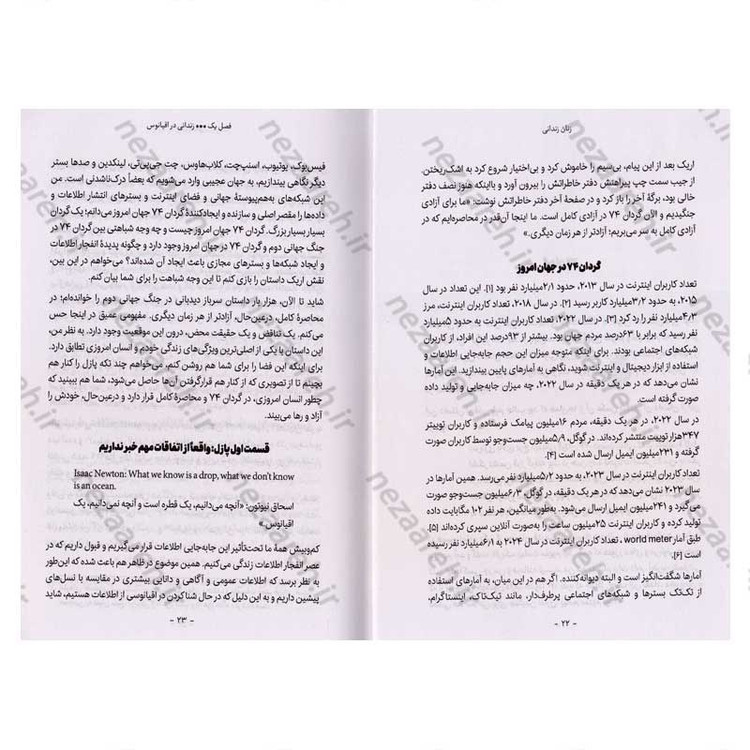 زنان زندانی
اریک بعد از این پیام، بی‌سیم را خاموش کرد و بی‌اختیار شروع کرد به اشک‌ریختن.
از جیب سمت چپ پیراهنش دفتر خاطراتش را بیرون آورد و بااینکه هنوز نصف دفتر
خالی بود، برگهٔ آخر را باز کرد و در صفحهٔ آخر دفتر خاطراتش نوشت: «ما برای آزادی
جنگیدیم و الآن گردان ۷۴ در آزادی کامل است. ما اینجا آن‌قدر در محاصره‌ایم که در
آزادی کامل به سر می‌بریم؛ آزادتر از هر زمان دیگری.»
گردان ۷۴ در جهان امروز
تعداد کاربران اینترنت در سال ۲۰۱۳، حدود ۲٫۱میلیارد نفر بود [۱]. این تعداد در سال
۲۰۱۵، به حدود ۳٫۲میلیارد کاربر رسید [۲]. در سال ۲۰۱۸، تعداد کاربران اینترنت، مرز
۴٫۳میلیارد نفر را رد کرد [۳]. در سال ۲۰۲۲، تعداد کاربران اینترنت به حدود ۵میلیارد
نفر رسید که برابر با ۶۳درصد مردم جهان بود. بیشتر از ۹۳درصد این افراد، از کاربران
شبکه‌های اجتماعی بودند. برای اینکه متوجه میزان این حجم جابه‌جایی اطلاعات و
استفاده از ابزار دیجیتال و اینترنت شوید، نگاهی به آمارهای پایین بیندازید. این آمارها
نشان می‌دهد که در هر یک دقیقه در سال ۲۰۲۲، چه میزان جابه‌جایی و تولید داده
صورت گرفته است.
در سال ۲۰۲۲، در هر یک دقیقه، مردم ۱۶میلیون پیامک فرستاده و کاربران توییتر
۳۴۷هزار توییت منتشر کرده‌اند. در گوگل، ۵٫۹میلیون جست‌وجو توسط کاربران صورت
گرفته و ۲۳۱میلیون ایمیل ارسال شده است [۴].
تعداد کاربران اینترنت در سال ۲۰۲۳، به حدود ۵٫۲میلیارد نفر می‌رسد. همین آمارها در
سال ۲۰۲۳ نشان می‌دهد که در هر یک دقیقه، در گوگل، ۶٫۳میلیون جست‌وجو صورت
می‌گیرد و ۲۴۱میلیون ایمیل ارسال می‌شود. به‌طور میانگین، هر نفر ۱۰۲ مگابایت داده
تولید کرده و کاربران اینترنت ۲۵میلیون ساعت را به‌صورت آنلاین سپری کرده‌اند [۵].
طبق آمار world meter، تعداد کاربران اینترنت در سال ۲۰۲۴ به ۶٫۱میلیارد نفر رسیده
است [۶].
آمارها شگفت‌انگیز است و البته دیوانه‌کننده. اگر هم در این میان، به آمارهای استفاده
از تک‌تک بسترها و شبکه‌های اجتماعی پرطرف‌دار، مانند تیک‌تاک، اینستاگرام،
- ۲۲ -
فصل یک ••• زندانی در اقیانوس
فیس‌بوک، یوتیوب، اسنپ‌چت، کلاب‌هاوس، چت جی‌پی‌تی، لینکدین و صدها بستر
دیگر نگاهی بیندازیم، به جهان عجیبی وارد می‌شویم که بعضاً درک‌ناشدنی است. من
این شبکه‌های به‌هم‌پیوستهٔ جهانی و فضای اینترنت و بسترهای انتشار اطلاعات و
داده‌ها را مقصر اصلی و سازنده و ایجادکنندهٔ گردان ۷۴ جهان امروز می‌دانم؛ یک گردان
بسیار بسیار بزرگ. گردان ۷۴ جهان امروز چیست و چه وجه شباهتی بین گردان ۷۴ در
جنگ جهانی دوم و گردان ۷۴ در جهان امروز وجود دارد و چگونه پدیدهٔ انفجار اطلاعات
و ایجاد شبکه‌ها و بسترهای مجازی باعث ایجاد آن شده‌اند؟ می‌خواهم در این بین،
نقش اریک داستان را بازی کنم تا این وجه شباهت را برای شما بیان کنم.
شاید تا الآن، هزار بار داستان سرباز دیدبانی در جنگ جهانی دوم را خوانده‌ام؛ در
محاصرهٔ کامل، درعین‌حال، آزادتر از هر زمان دیگری. مفهومی عمیق در اینجا حس
می‌کنم. یک تناقض و یک حقیقت محض، درون این موقعیت وجود دارد. به نظر من،
این داستان با یکی از اصلی‌ترین ویژگی‌های زندگی خودم و انسان امروزی تطابق دارد.
برای اینکه این فضا را برای شما هم روشن کنم، می‌خواهم چند تکه پازل را کنار هم
بچینم تا از تصویری که از کنار هم قرارگرفتن آن‌ها حاصل می‌شود، شما هم ببینید که
چطور انسان امروزی، در گردان ۷۴ و محاصرهٔ کامل قرار دارد و درعین‌حال، خودش را
آزاد و رها می‌بیند.
قسمت اول پازل: واقعاً از اتفاقات مهم خبر نداریم
Isaac Newton: What we know is a drop, what we don't know
is an ocean.
اسحاق نیوتون: «آنچه می‌دانیم، یک قطره است و آنچه نمی‌دانیم، یک
اقیانوس.»
کم‌وبیش همهٔ ما تحت‌تأثیر این جابه‌جایی اطلاعات قرار می‌گیریم و قبول داریم که در
عصر انفجار اطلاعات زندگی می‌کنیم. همین موضوع در ظاهر هم باعث شده که این‌طور
به نظر برسد که اطلاعات عمومی و آگاهی و دانایی بیشتری در مقایسه با نسل‌های
پیشین داریم و به این دلیل که در حال شنا کردن در اقیانوسی از اطلاعات هستیم، شاید
- ۲۳ -
nezaareh.ir